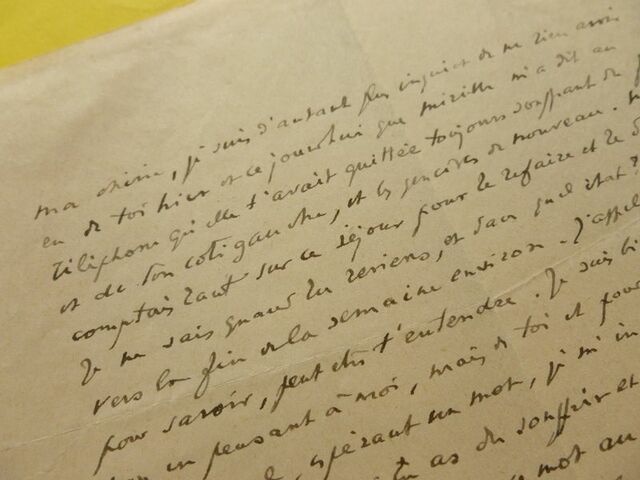 ma chérie, je suis d'autant plus inquiet de ne rien avoir
eu de toi hier et ce jourd'hui que mireille m'a dit au
téléphone qu'elle t'avait quittée toujours souffrant de
et de ton côté gauche, et les gencives de nouveau.
comptais tant sur ce séjour pour te refaire et te
Je ne sais quand tu reviens, et dans quel état?
vers la fin de la semaine environ. J'appel
pour savoir, peut être t'entendre. Je suis bi
en pensant à moi, mais de toi et pour
espérant un mot, je m'in
tu as du souffrir et
mot au